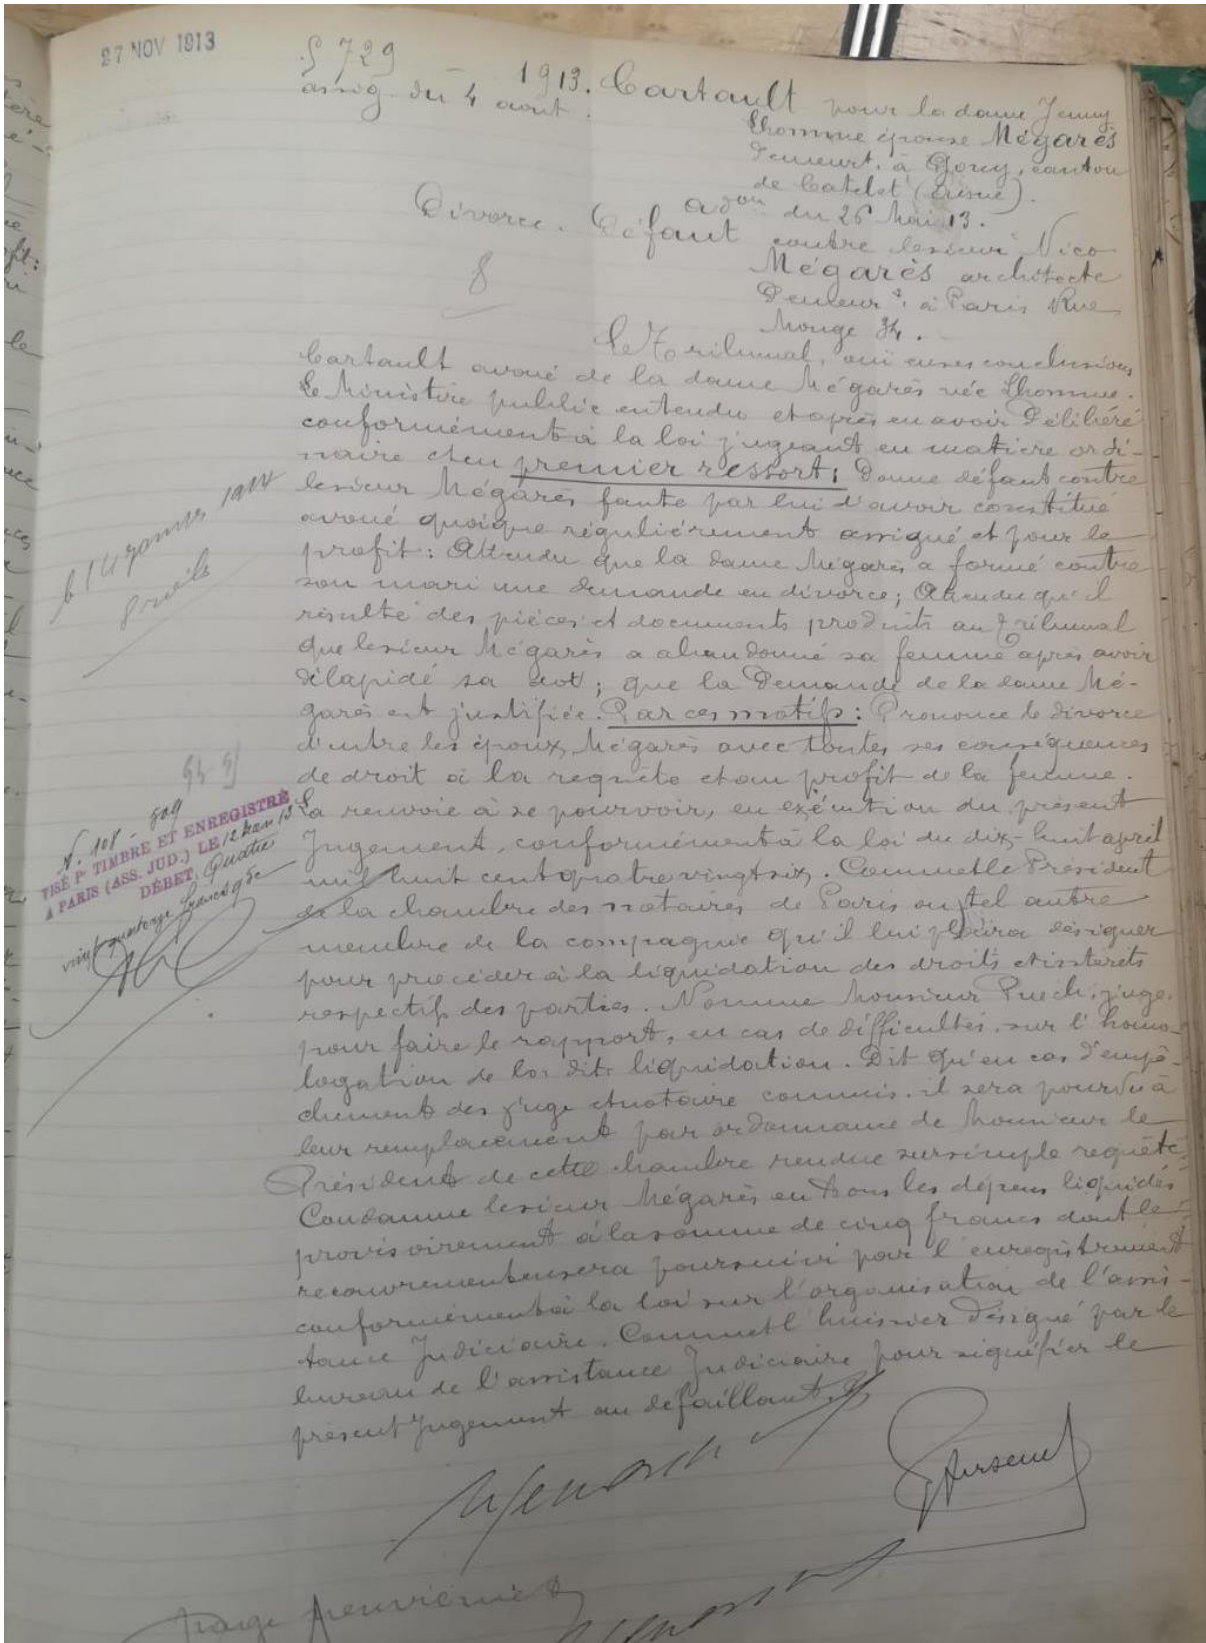 27 NOV 1913
§ 729
assig. du 4 aout.
1913. Cartault pour la dame Jenny
Lhomme épouse Mégarès
Demeurt. à Gouy, canton
de Catelet (Aisne).
ason du 26 Mai 13.
Divorce. Défaut contre lesieur Nico
Mégarès architecte
Demeurt. à Paris Rue
Monge 34.
8
Le Tribunal, ouï en ses conclusions
Cartault avoué de la dame Mégarès née Lhomme.
Le Ministère public entendu et après en avoir Délibéré
conformément à la loi jugeant en matière ordi-
naire et en premier ressort; Donne défaut contre
lesieur Mégarès faute par lui d'avoir constitué
avoué quoique régulièrement assigné et pour le
profit: Attendu que la dame Mégarès a formé contre
son mari une demande en divorce; Attendu qu'il
résulte des pièces et documents produits au Tribunal
que lesieur Mégarès a abandonné sa femme après avoir
dilapidé sa dot; que la Demande de la dame Mé-
garès est justifiée. Par ces motifs: Prononce le divorce
d'entre les époux Mégarès avec toutes ses conséquences
de droit à la requête et au profit de la femme.
La renvoie à se pourvoir, en exécution du présent
Jugement, conformément à la loi du dix-huit april
mil huit cent quatre vingt six. Commet le Président
de la chambre des notaires de Paris ou tel autre
membre de la compagnie qu'il lui plaira désigner
pour procéder à la liquidation des droits et intérêts
respectifs des parties. Nomme Monsieur Puech, juge,
pour faire le rapport, en cas de difficultés, sur l'homo-
logation de la dite liquidation. Dit qu'en cas d'empê-
chement des juge et notaire commis, il sera pourvu à
leur remplacement par ordonnance de Monsieur le
Président de cette chambre rendue sur simple requête.
Condamne lesieur Mégarès en tous les dépens liquidés
provisoirement à la somme de cinq francs dont le
recouvrement en sera poursuivi par l'enregistrement
conformément à la loi sur l'organisation de l'assis-
tance Judiciaire. Commet l'huissier Désigné par le
bureau de l'assistance Judiciaire pour signifier le
présent Jugement au défaillant.
N. 108 - 809
VISÉ Pr TIMBRE ET ENREGISTRÉ
A PARIS (ASS. JUD.) LE 12
DÉBET. Quatre
vingt quatorze francs